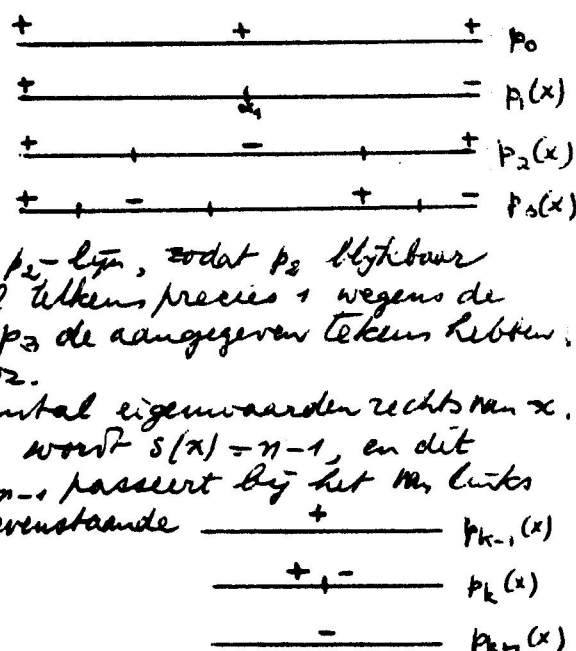 + + + p₀
+ − p₁(x)
α₁
+ − + p₂(x)
+ − + − p₃(x)
p₂-lijn, zodat p₂ blijkbaar
telkens precies 1 wegens de
p₃ de aangegeven tekens hebben.
ntal eigenwaarden rechts van x.
wordt s(x) = n-1, en dit
n-1 passeert bij het van links
venstaande
+ pₖ₋₁(x)
+ − pₖ(x)
− pₖ₊₁(x)